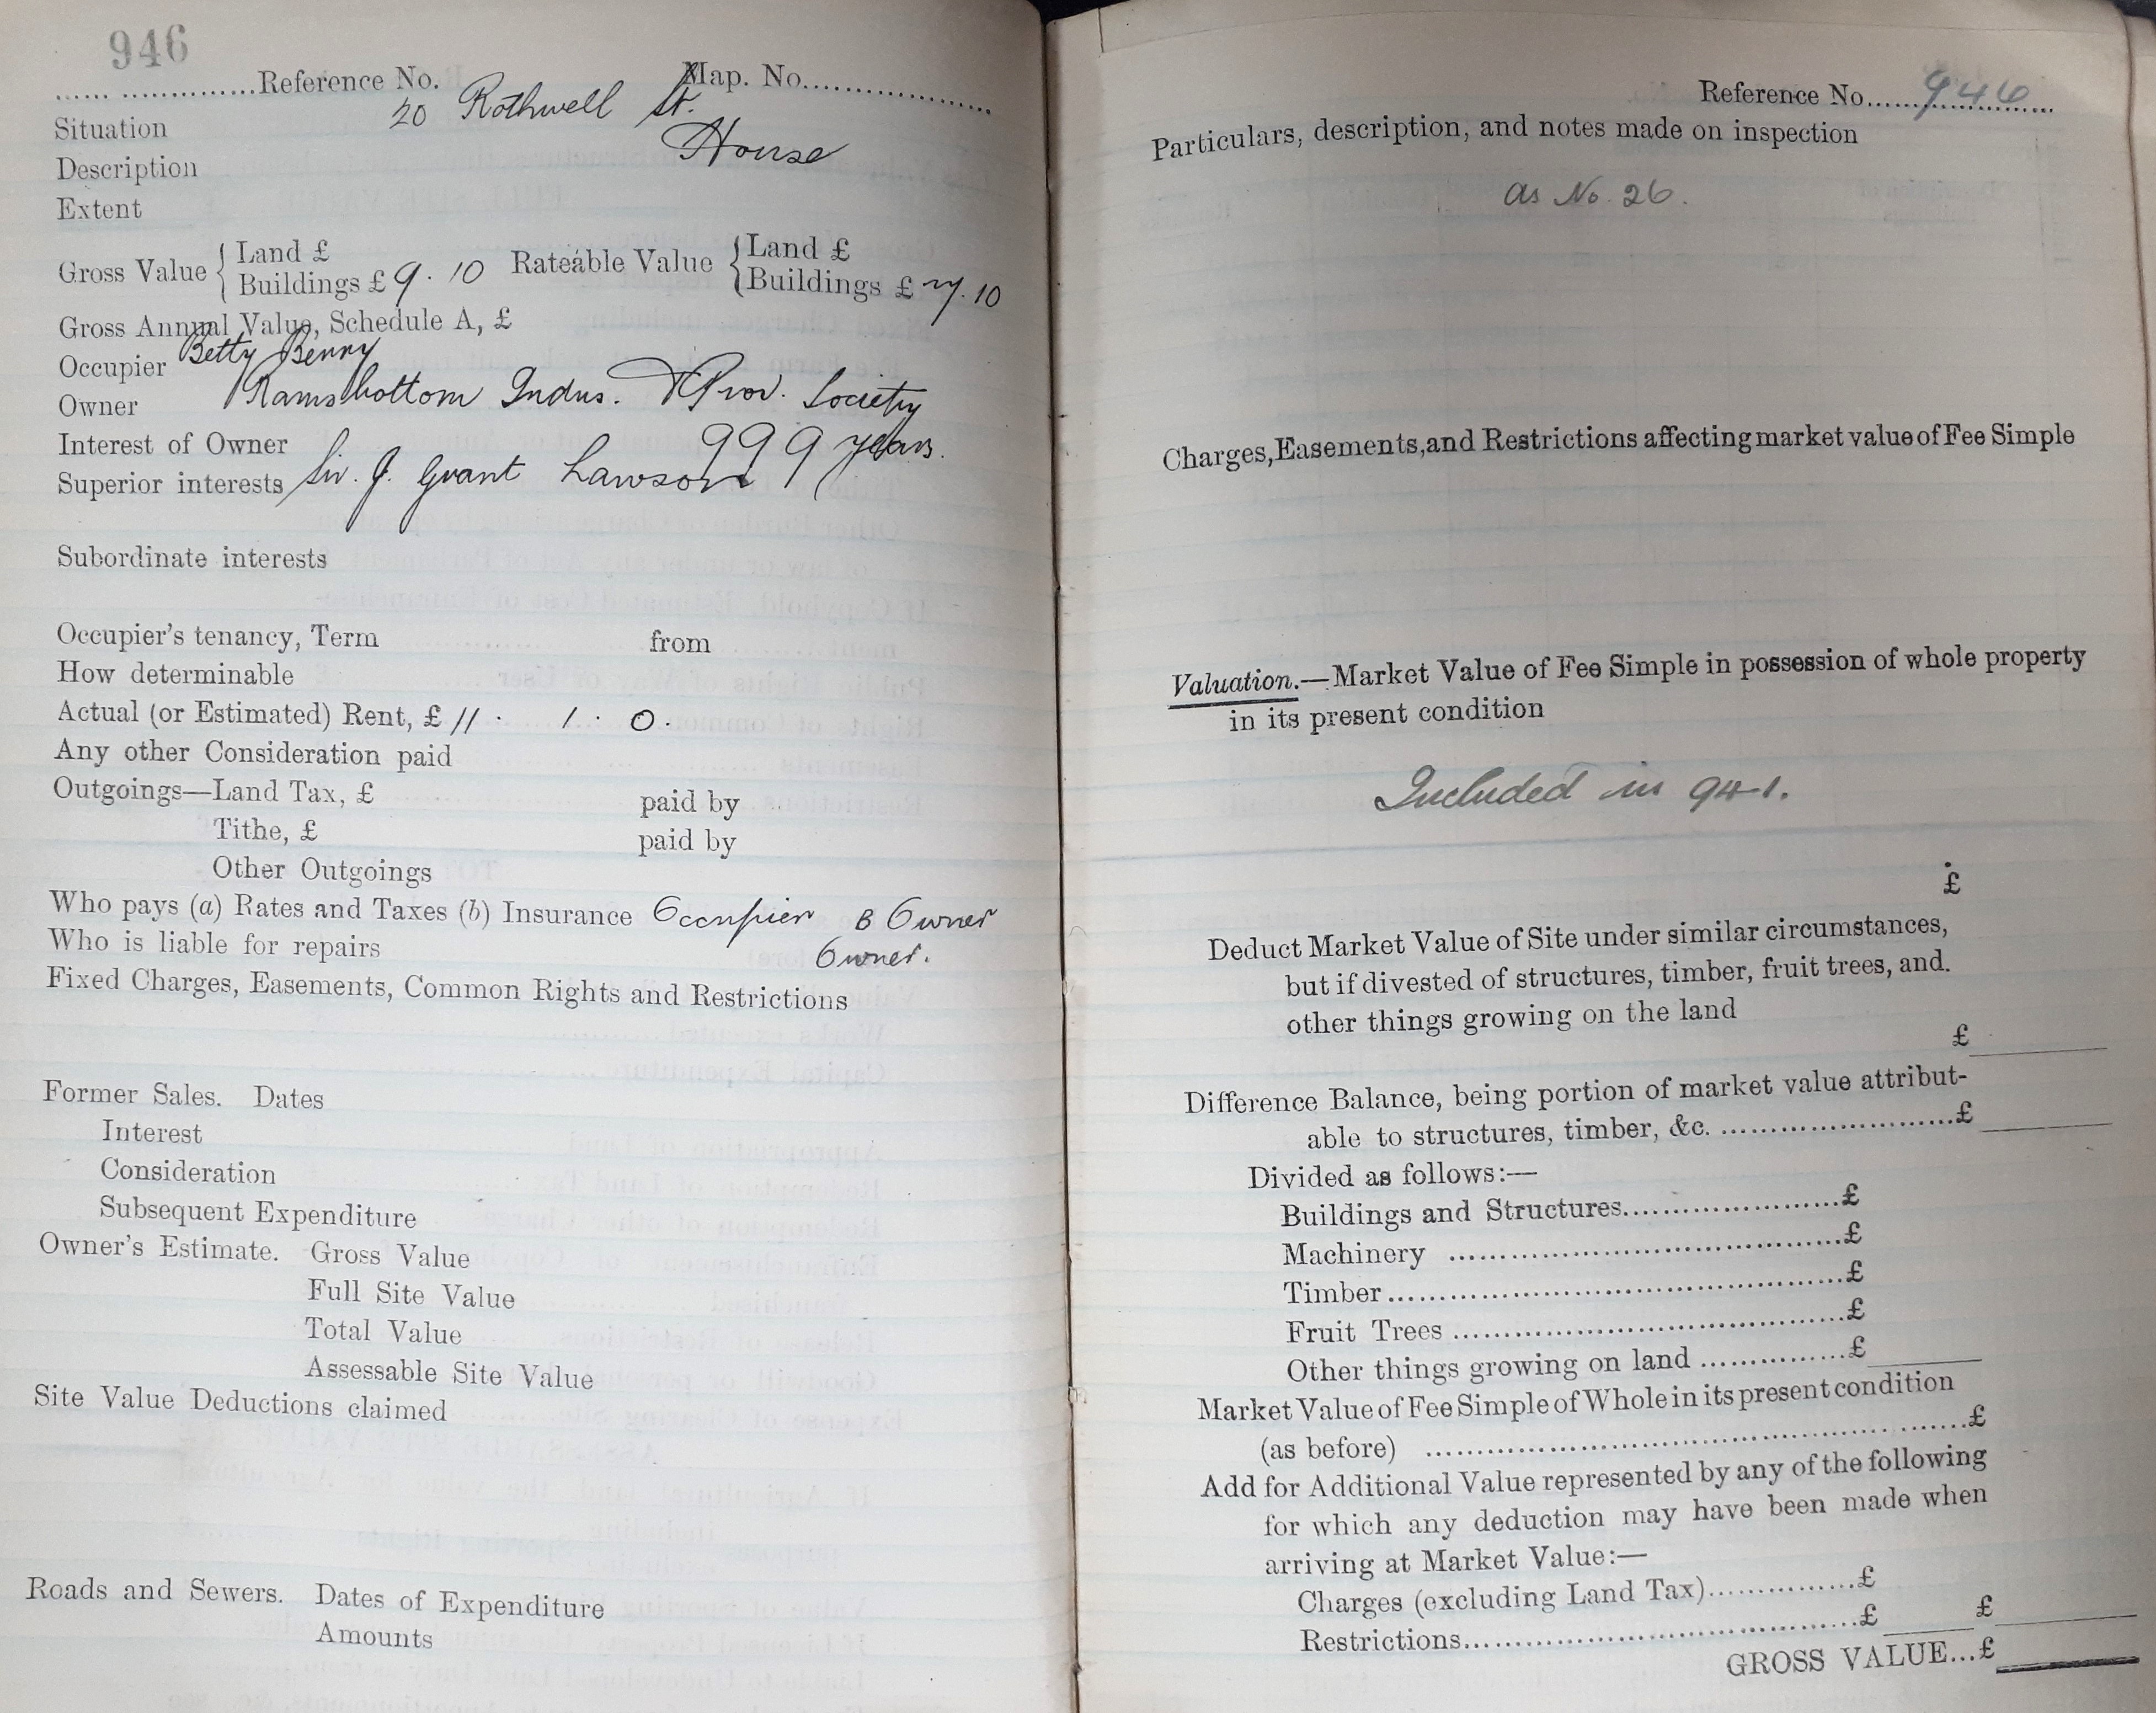 946
...... ..............Reference No. Map. No....................
Situation 20 Rothwell St.
Description House
Extent
Gross Value { Land £ Rateable Value { Land £
Buildings £ 9. 10 Buildings £ 7. 10
Gross Annual Value, Schedule A, £
Occupier Betty Benny
Owner Ramsbottom Indus. & Prov. Society
Interest of Owner 999 years.
Superior interests Sir. J. Grant Lawson
Subordinate interests
Occupier's tenancy, Term from
How determinable
Actual (or Estimated) Rent, £ 11 . 1 . 0.
Any other Consideration paid
Outgoings—Land Tax, £ paid by
Tithe, £ paid by
Other Outgoings
Who pays (a) Rates and Taxes (b) Insurance Occupier B Owner
Who is liable for repairs Owner.
Fixed Charges, Easements, Common Rights and Restrictions
Former Sales. Dates
Interest
Consideration
Subsequent Expenditure
Owner's Estimate. Gross Value
Full Site Value
Total Value
Assessable Site Value
Site Value Deductions claimed
Roads and Sewers. Dates of Expenditure
Amounts
Reference No......946...
Particulars, description, and notes made on inspection
as No. 26.
Charges, Easements, and Restrictions affecting market value of Fee Simple
Valuation.—Market Value of Fee Simple in possession of whole property
in its present condition
Included in 941.
£
Deduct Market Value of Site under similar circumstances,
but if divested of structures, timber, fruit trees, and.
other things growing on the land
£
Difference Balance, being portion of market value attribut-
able to structures, timber, &c. ........................£
Divided as follows:—
Buildings and Structures.......................£
Machinery .........................................£
Timber...............................................£
Fruit Trees .........................................£
Other things growing on land ...............£
Market Value of Fee Simple of Whole in its present condition
(as before) .......................................................£
Add for Additional Value represented by any of the following
for which any deduction may have been made when
arriving at Market Value:—
Charges (excluding Land Tax)...............£
Restrictions..........................................£ £
GROSS VALUE...£